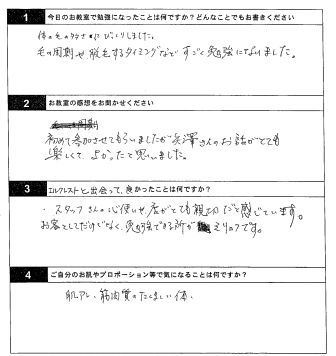 1 今日のお教室で勉強になったことは何ですか？どんなことでもお書きください
体の毛の多さにびっくりしました。
毛の周期や脱毛するタイミングなど すごく勉強になりました。
2 お教室の感想をお聞かせください
初めて参加させてもらいましたが 兵澤さんのお話がとても
楽しくて よかったと思いました。
3 エルクレストと出会って、良かったことは何ですか？
・スタッフさんの心使いや、店がとても親切だと感じています。
お客としてだけでなく、勉強できる所が えりのアです。
4 ご自分のお肌やプロポーション等で気になることは何ですか？
肌アレ、筋肉質のたくましい体。